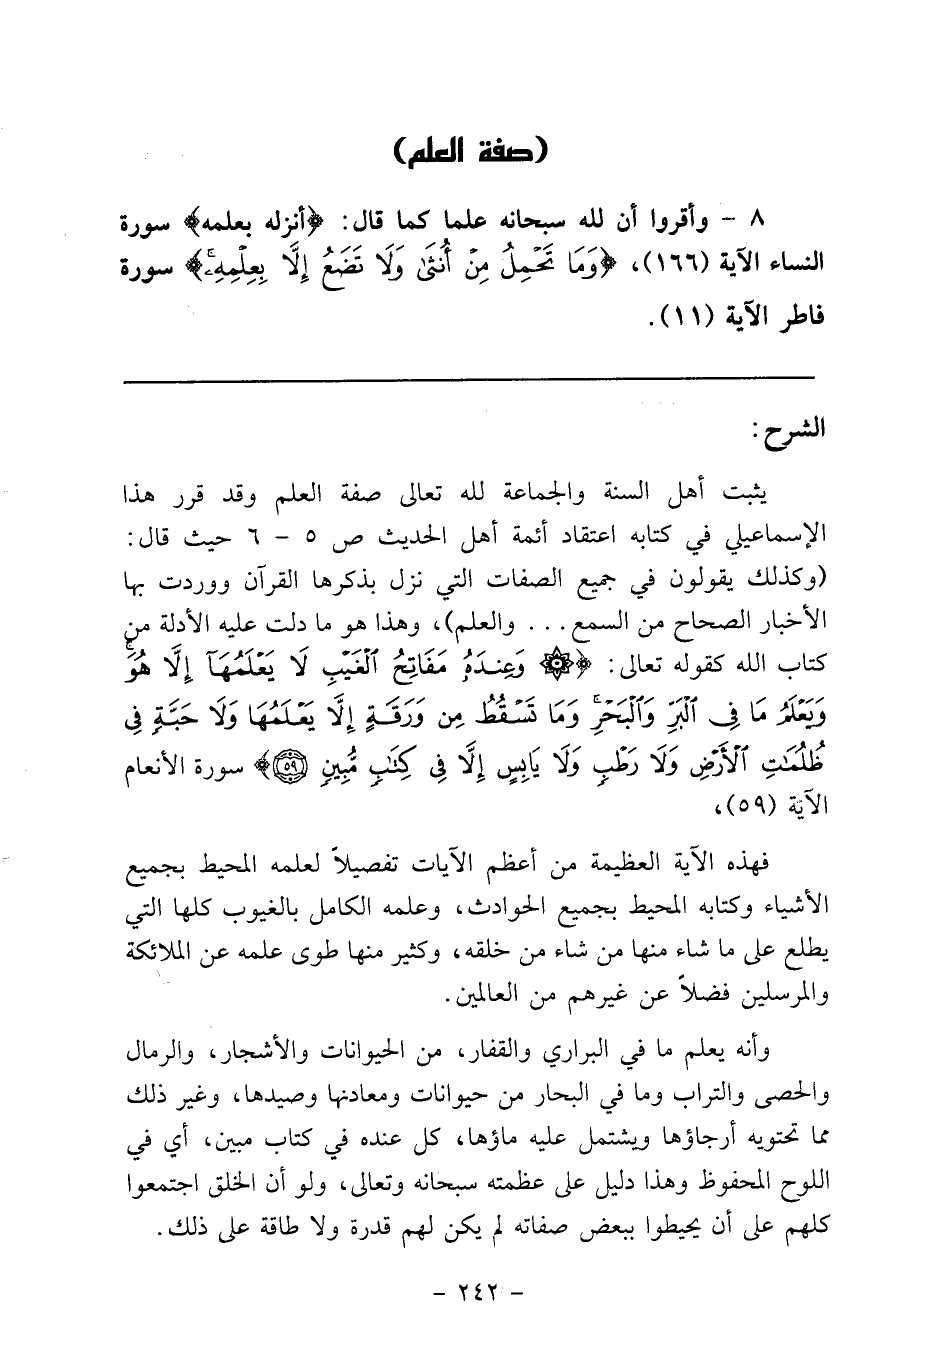 (صفة العلم)
٨ - وأقروا أن لله سبحانه علما كما قال: ﴿أنزله بعلمه﴾ سورة
النساء الآية (١٦٦)، ﴿وَمَا تَحْمِلُ مِنْ أُنثَىٰ وَلَا تَضَعُ إِلَّا بِعِلْمِهِۦۚ﴾ سورة
فاطر الآية (١١).
الشرح:
يثبت أهل السنة والجماعة لله تعالى صفة العلم وقد قرر هذا
الإسماعيلي في كتابه اعتقاد أئمة أهل الحديث ص ٥ - ٦ حيث قال:
(وكذلك يقولون في جميع الصفات التي نزل بذكرها القرآن ووردت بها
الأخبار الصحاح من السمع... والعلم)، وهذا هو ما دلت عليه الأدلة من
كتاب الله كقوله تعالى: ﴿۞ وَعِندَهُۥ مَفَاتِحُ ٱلْغَيْبِ لَا يَعْلَمُهَآ إِلَّا هُوَۚ
وَيَعْلَمُ مَا فِى ٱلْبَرِّ وَٱلْبَحْرِۚ وَمَا تَسْقُطُ مِن وَرَقَةٍ إِلَّا يَعْلَمُهَا وَلَا حَبَّةٍ فِى
ظُلُمَٰتِ ٱلْأَرْضِ وَلَا رَطْبٍ وَلَا يَابِسٍ إِلَّا فِى كِتَٰبٍ مُّبِينٍ ۝٥٩﴾ سورة الأنعام
الآية (٥٩)،
فهذه الآية العظيمة من أعظم الآيات تفصيلاً لعلمه المحيط بجميع
الأشياء وكتابه المحيط بجميع الحوادث، وعلمه الكامل بالغيوب كلها التي
يطلع على ما شاء منها من شاء من خلقه، وكثير منها طوى علمه عن الملائكة
والمرسلين فضلاً عن غيرهم من العالمين.
وأنه يعلم ما في البراري والقفار، من الحيوانات والأشجار، والرمال
والحصى والتراب وما في البحار من حيوانات ومعادنها وصيدها، وغير ذلك
مما تحتويه أرجاؤها ويشتمل عليه ماؤها، كل عنده في كتاب مبين، أي في
اللوح المحفوظ وهذا دليل على عظمته سبحانه وتعالى، ولو أن الخلق اجتمعوا
كلهم على أن يحيطوا ببعض صفاته لم يكن لهم قدرة ولا طاقة على ذلك.
- ٢٤٢ -